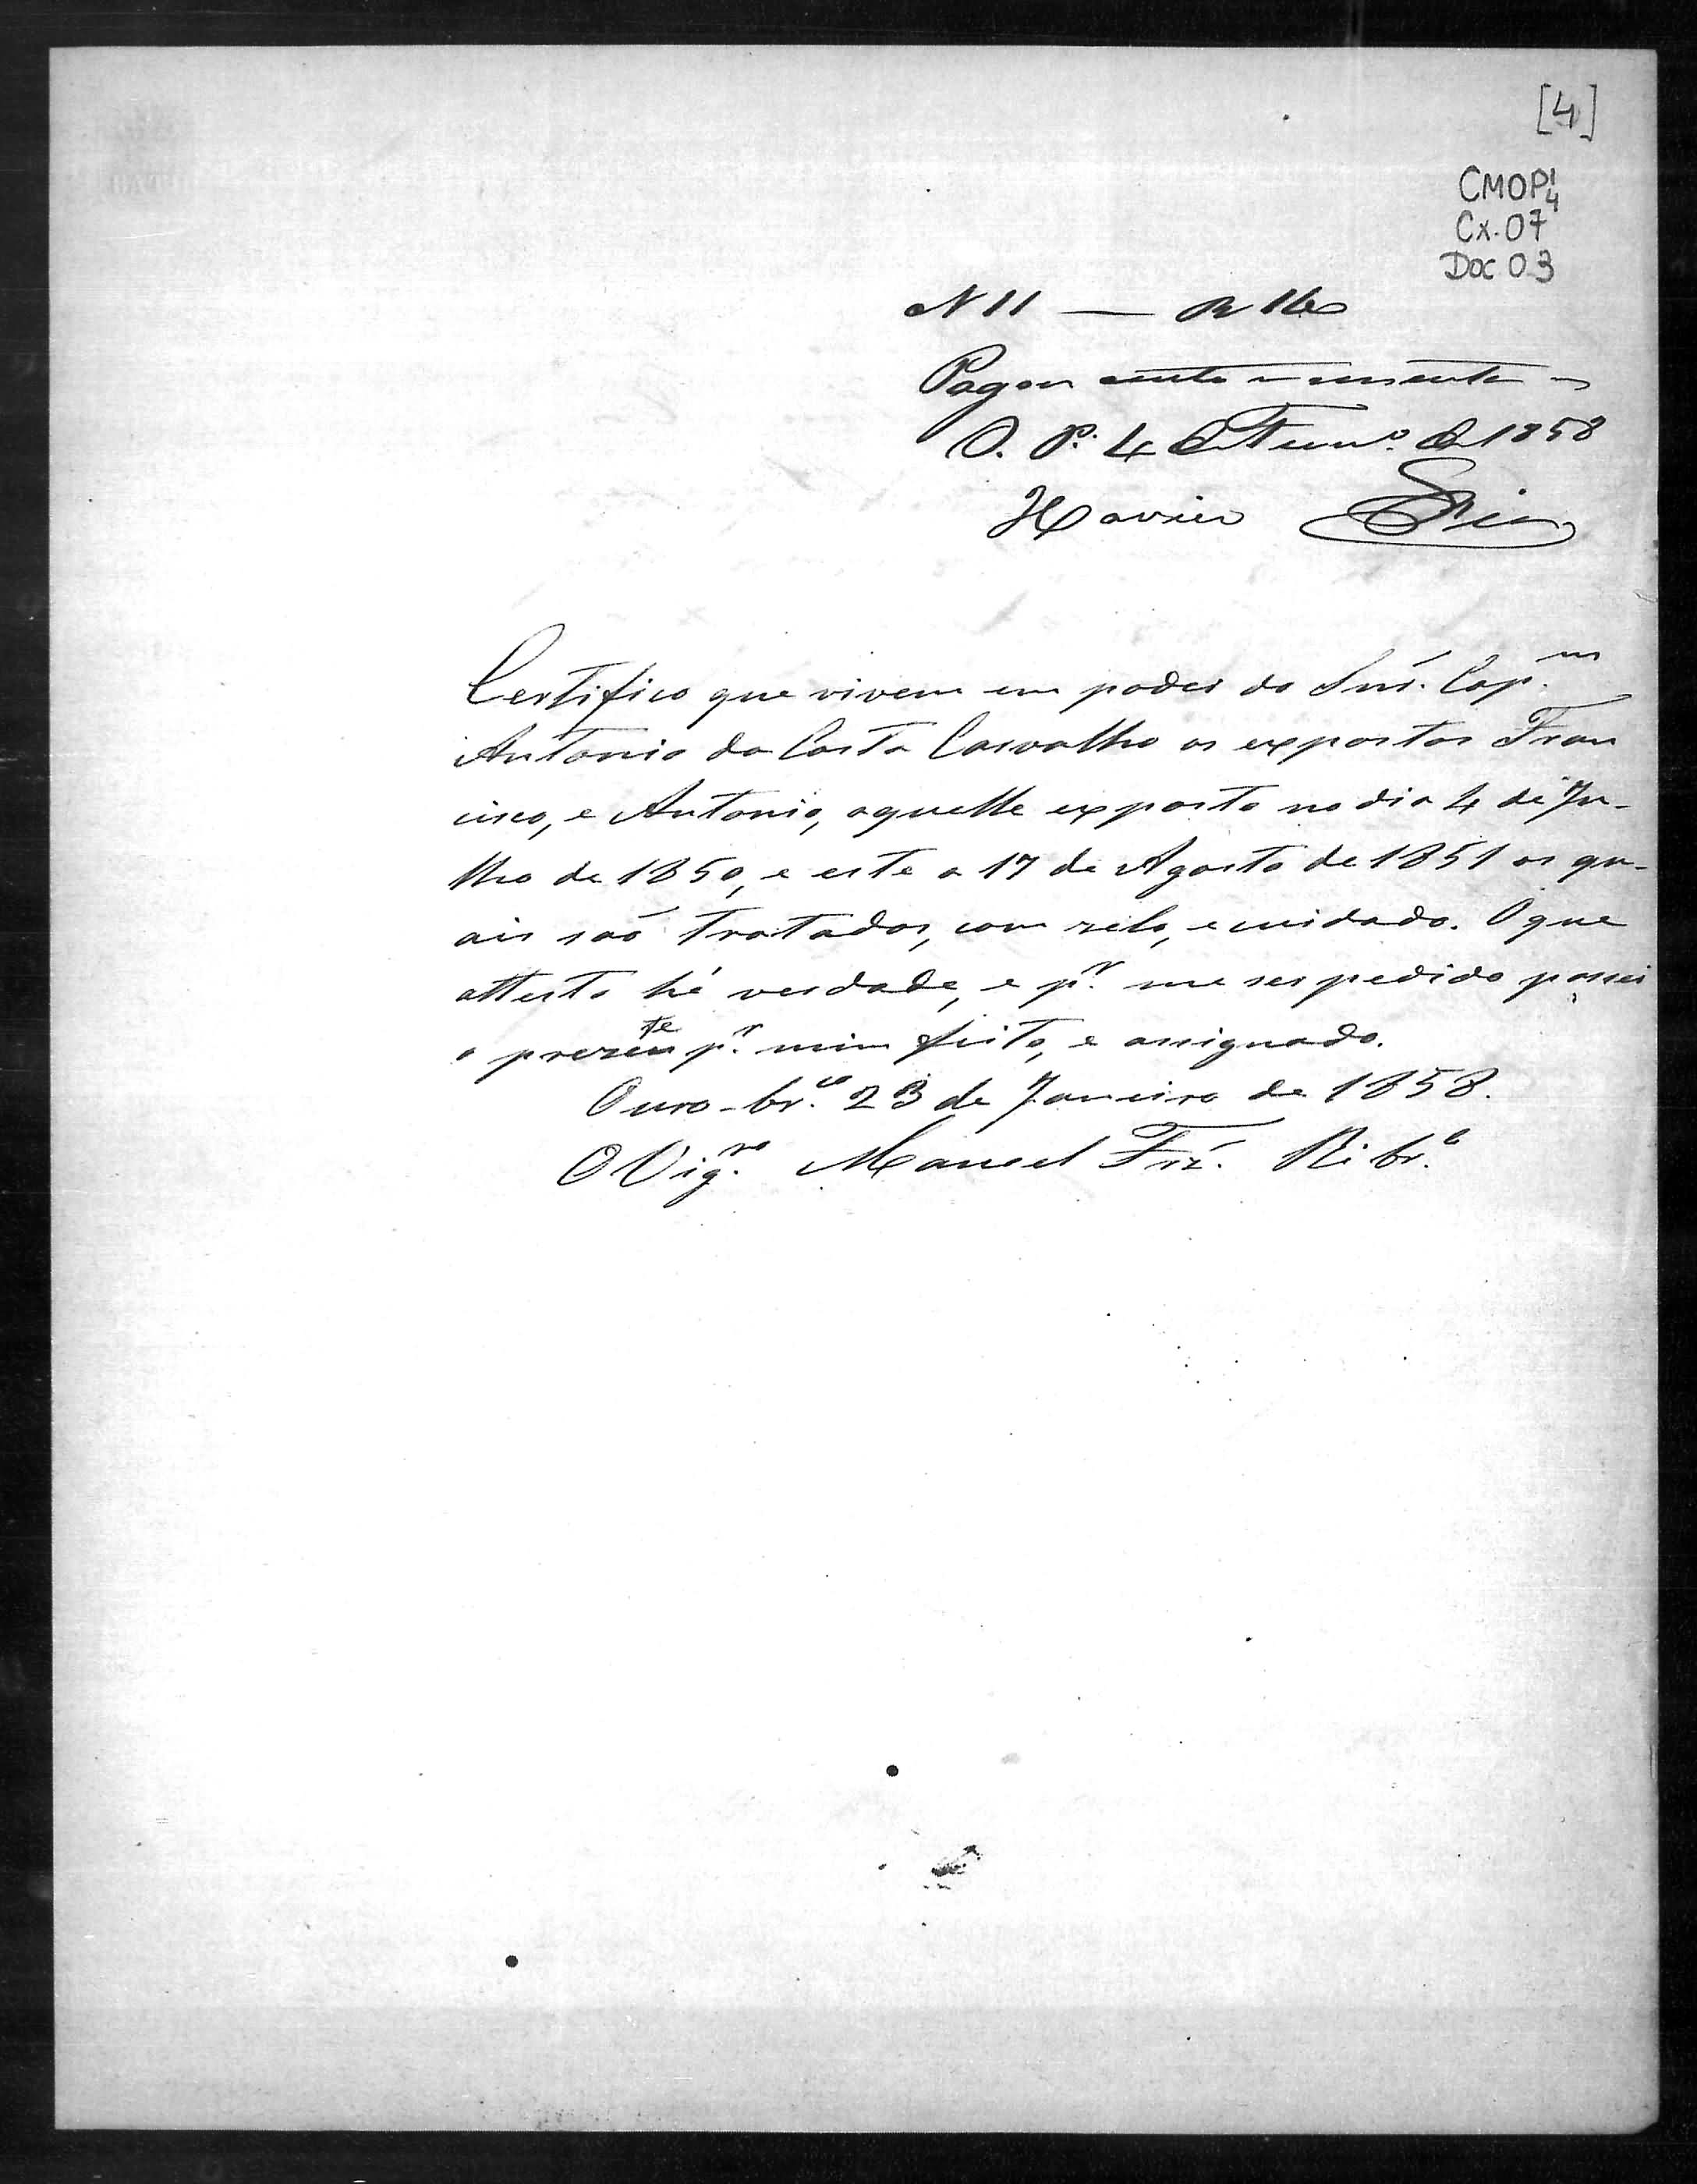 [4]
CMOP 1/4
Cx. 07
Doc 03
N 11 —
Pagou cento e
O. P. 4 de Fevr.º de 1858
Xavier
Certifico que vivem em poder do Snr. Capm.
Antonio da Costa Carvalho os expostos Fran
cisco, e Antonio, aquelle exposto no dia 4 de Ju-
lho de 1850, e este a 17 de Agosto de 1851 os qu-
ais saó tratados, com zelo, e cuidado. O que
attesto hé verdade, e pr. me ser pedido passei
o prezente pr. mim feito, e assignado.
Ouro-br.co 23 de Janeiro de 1858.
O Vig.ro Manoel Frz. Ribr.o